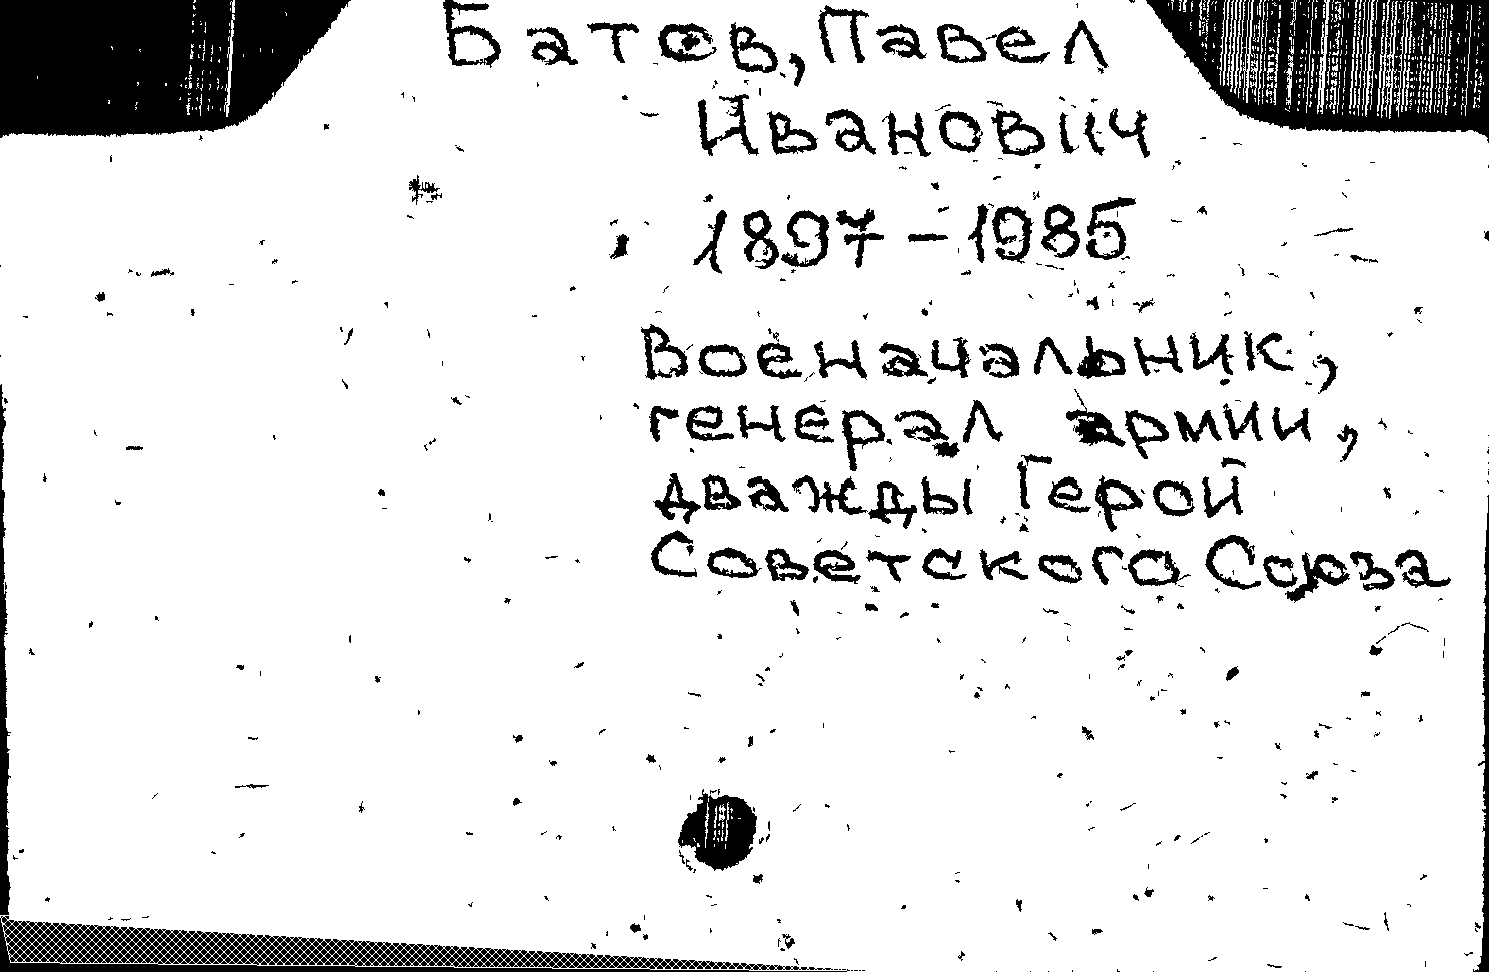 Батов, Павел
Иванович
1897-1985
Военачальник,
генерал армии,
дважды Герой
Советского Союза